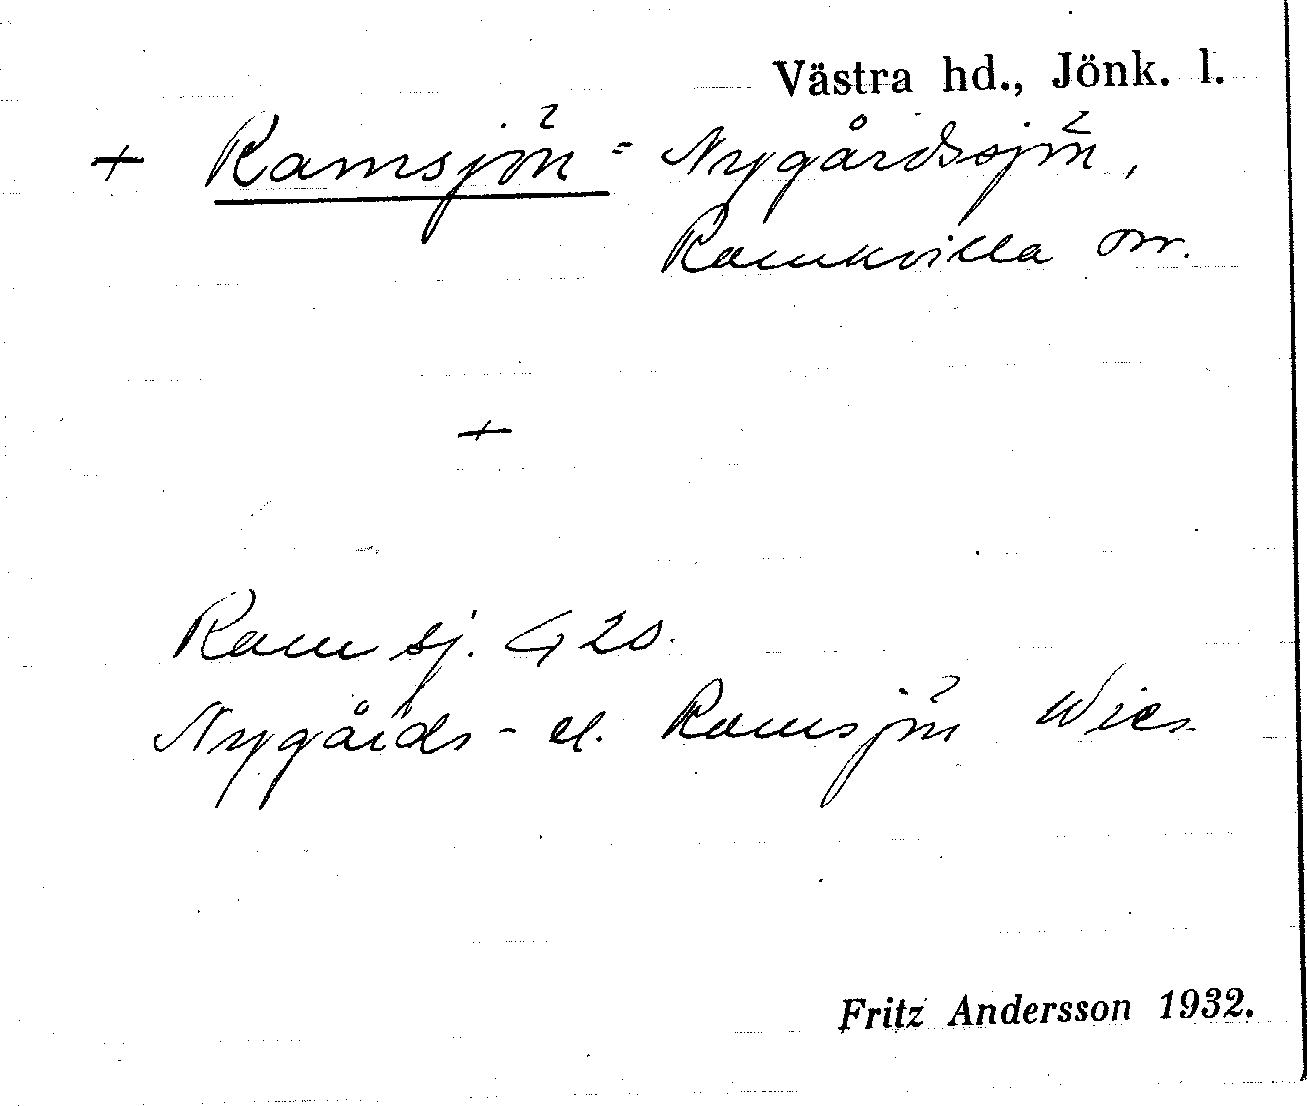 Västra hd., Jönk. l.
+ Ramsjön = Nygårdssjön,
Ramkvilla sn.
+
Ramsj. G 20.
Nygårds- el. Ramsjön Wies
Fritz Andersson 1932.